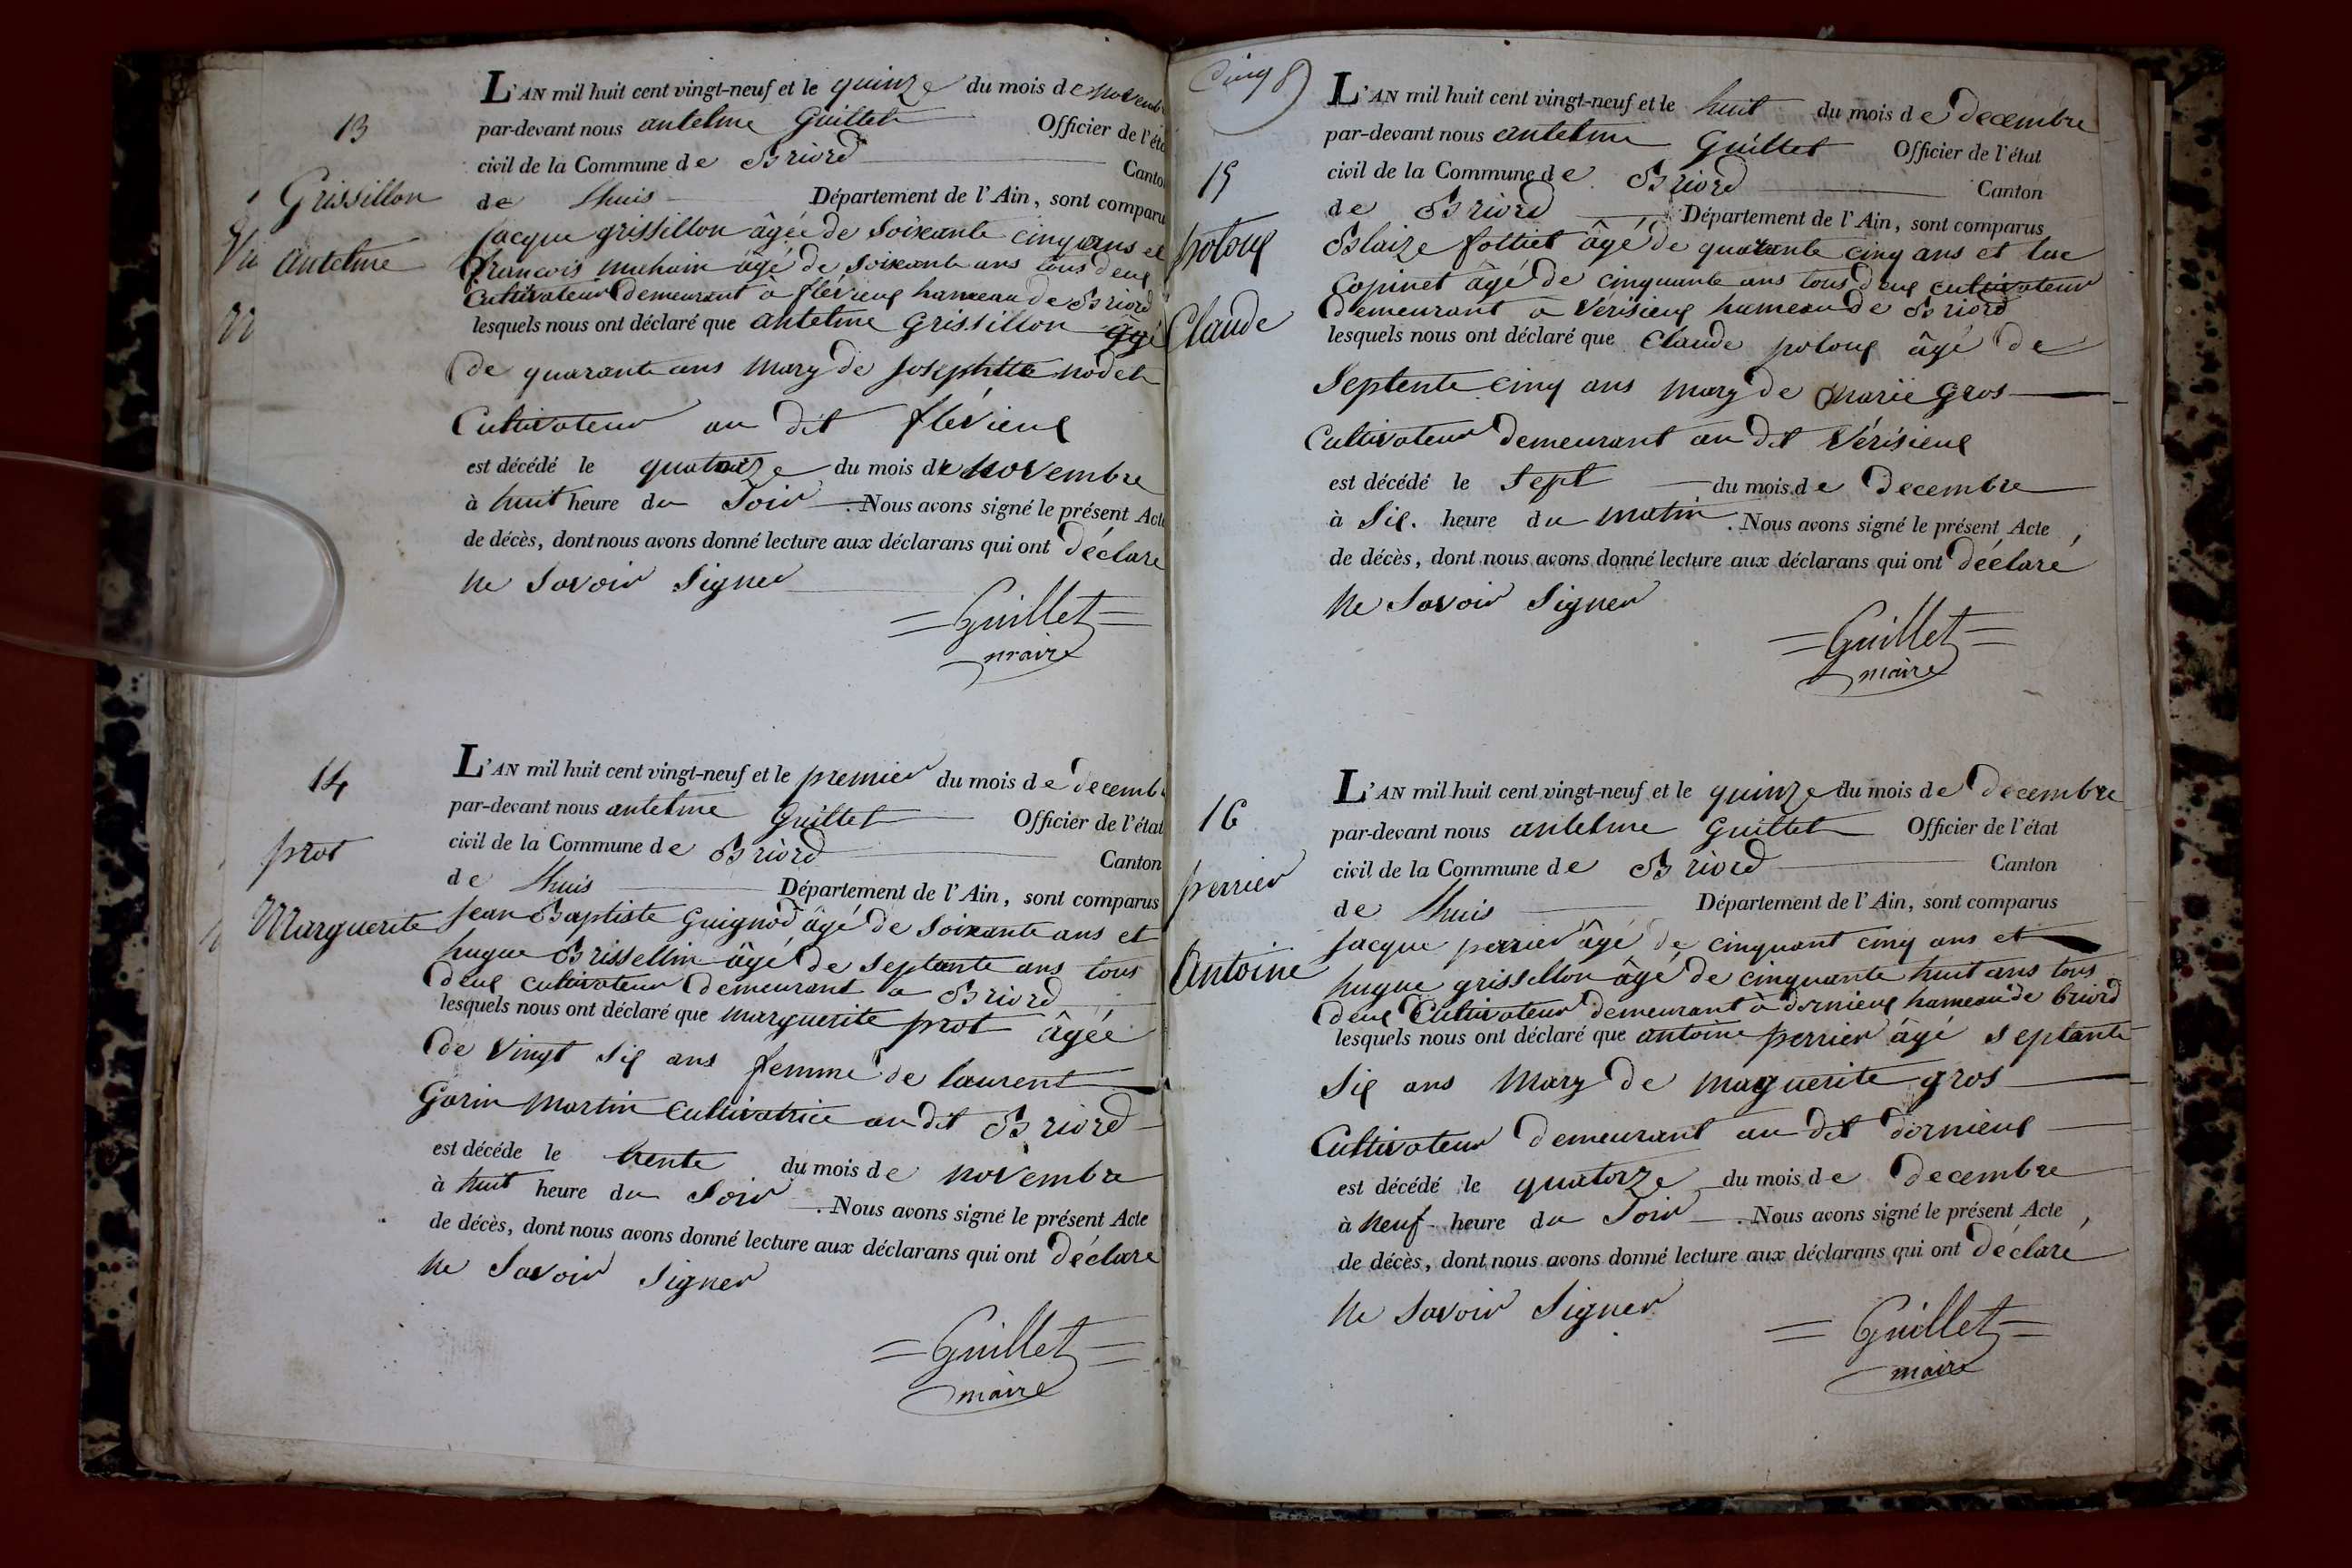 13
Grissillon
antelme
L'AN mil huit cent vingt-neuf et le quinze du mois de novembr
par-devant nous antelme Guillet Officier de l'éta
civil de la Commune de Briord Canton
de Lhuis Département de l'Ain, sont comparu
jacque grissillon âgée de soixante cinq ans et
francois michain âgé de soixante ans tous deux
Cultivateur demeurant à flévieux hameau de Briord
lesquels nous ont déclaré que antelme Grissillon âgé
de quarante ans mary de josephtte nodet
Cultivateur au dit flévieux
est décédé le quatorze du mois de novembre
à huit heure du Soir. Nous avons signé le présent Acte
de décès, dont nous avons donné lecture aux déclarans qui ont déclare
ne Savoir Signer
Guillet
maire
14
prot
Marguerite
L'AN mil huit cent vingt-neuf et le premier du mois de decemb
par-devant nous antelme Guillet Officier de l'état
civil de la Commune de Briord Canton
de Lhuis Département de l'Ain, sont comparus
jean Baptiste Guignod âgé de soixante ans et
hugue Brissellin âgé de septante ans tous
deux cultivateur demeurant a Briord
lesquels nous ont déclaré que marguerite prot âgée
de vingt six ans femme de laurent
Garin martin cultivatrice au dit Briord
est décéde le trente du mois de novembre
à huit heure du Soir. Nous avons signé le présent Acte
de décès, dont nous avons donné lecture aux déclarans qui ont déclare
ne Savoir Signer
Guillet
maire
Cinq
15
poloux
Claude
L'AN mil huit cent vingt-neuf et le huit du mois de decembre
par-devant nous antelme Guillet Officier de l'état
civil de la Commune de Briord Canton
de Briord Département de l'Ain, sont comparus
Blaize folliet âgé de quarante cinq ans et luc
Copinet âgé de cinquante ans tous deux cultivateur
demeurant a Vérisieux hameau de Briord
lesquels nous ont déclaré que Claude poloux âgé de
Septente cinq ans mary de marie Gros
Cultivateur demeurant au dit Vérisieux
est décédé le Sept du mois de Decembre
à Six. heure du matin. Nous avons signé le présent Acte
de décès, dont nous avons donné lecture aux déclarans qui ont déclaré
ne Savoir Signer
Guillet
maire
16
perrier
Antoine
L'AN mil huit cent vingt-neuf et le quinze du mois de decembre
par-devant nous antelme Guillet Officier de l'état
civil de la Commune de Briord Canton
de Lhuis Département de l'Ain, sont comparus
jacque perrier âgé de cinquant cinq ans et
hugue grissillon âgé de cinquante huit ans tous
deux Cultivateur demeurant à dornieux hameau de briord
lesquels nous ont déclaré que antoine perrier âgé septante
Six ans mary de maguerite gros
Cultivateur demeurant au dit dornieux
est décédé le quatorze du mois de decembre
à neuf heure du Soir. Nous avons signé le présent Acte
de décès, dont nous avons donné lecture aux déclarans qui ont déclaré
ne Savoir Signer
Guillet
maire